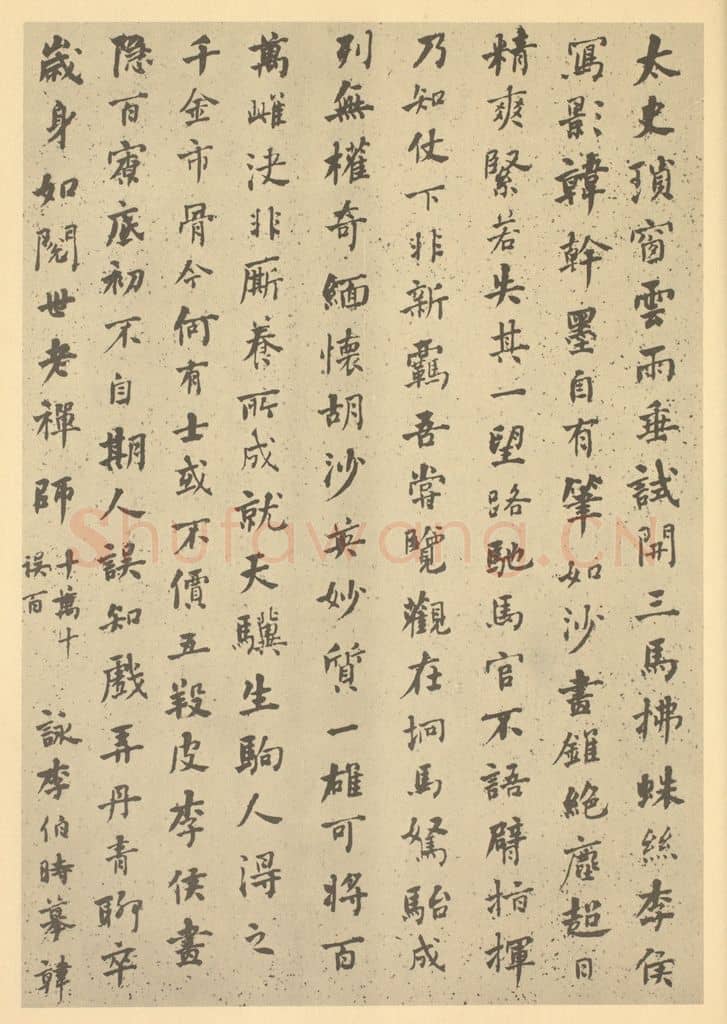 太史瑣窗雲雨垂試開三馬拂蛛絲李侯
寫影韓幹墨自有筆如沙畫錐絕塵超日
精爽緊若失其一望路馳馬官不語臂指揮
乃知仗下非新羈吾嘗覽觀在坰馬駑駘成
列無權奇緬懷胡沙英妙質一雄可將百
萬雌決非廝養所成就天驥生駒人得之
千金市骨今何有士或不價五羖皮李侯畫
隱百寮底初不自期人誤知戲弄丹青聊卒
歲身如閱世老禪師
十萬十
誤百
詠李伯時摹韓
Shufawang.CN